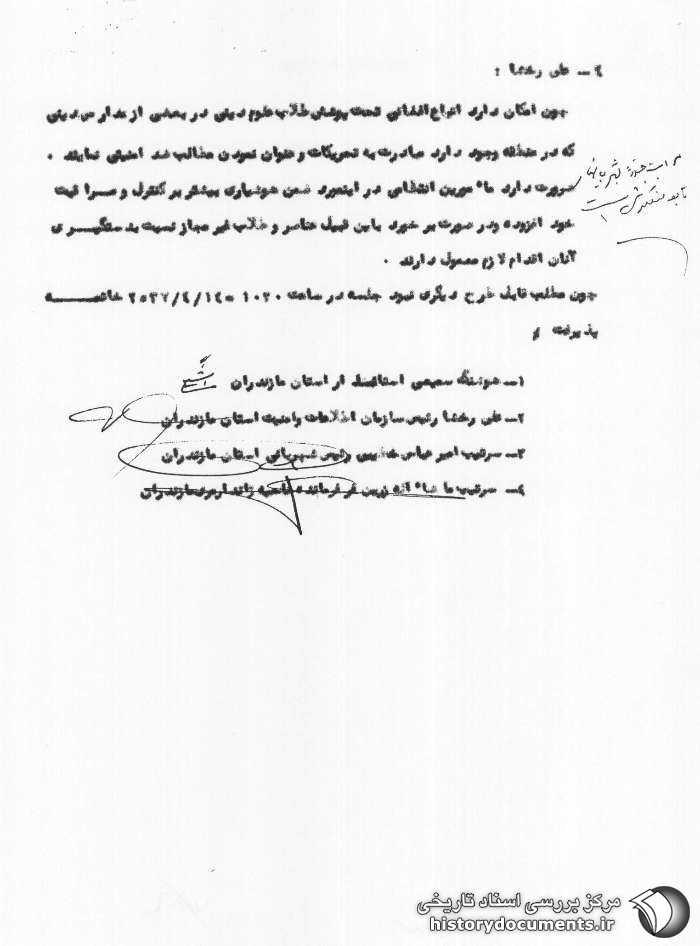 ۴ـ علی رخشا :
چون امکان دارد انواع افغانی تحت پوشش طلاب علوم دینی در بعضی از مدارس دینی
که در منطقه وجود دارد مبادرت به تحریکات و عنوان نمودن مطالب ضد امنیتی نمایند .
ضرورت دارد مأمورین انتظامی در اینمورد ضمن هوشیاری بیشتر بر کنترل و مراقبت
خود افزوده و در صورت برخورد با این قبیل عناصر و طلاب غیر مجاز نسبت بدستگیری
آنان اقدام لازم معمول دارند .
چون مطلب قابل طرح دیگری نبود جلسه در ساعت ۱۰۳۰ ۲۵۳۷/۴/۱۴ خاتمه
پذیرفت
۱ـ هوشنگ سمیعی استاندار استان مازندران
۲ـ علی رخشا رئیس سازمان اطلاعات و امنیت استان مازندران
۳ـ سرتیپ امیر عباس رئیس شهربانی استان مازندران
۴ـ سرتیپ ماشاءاله زرین فر فرمانده ناحیه ژاندارمری مازندران
مرکز بررسی اسناد تاریخی
historydocuments.ir